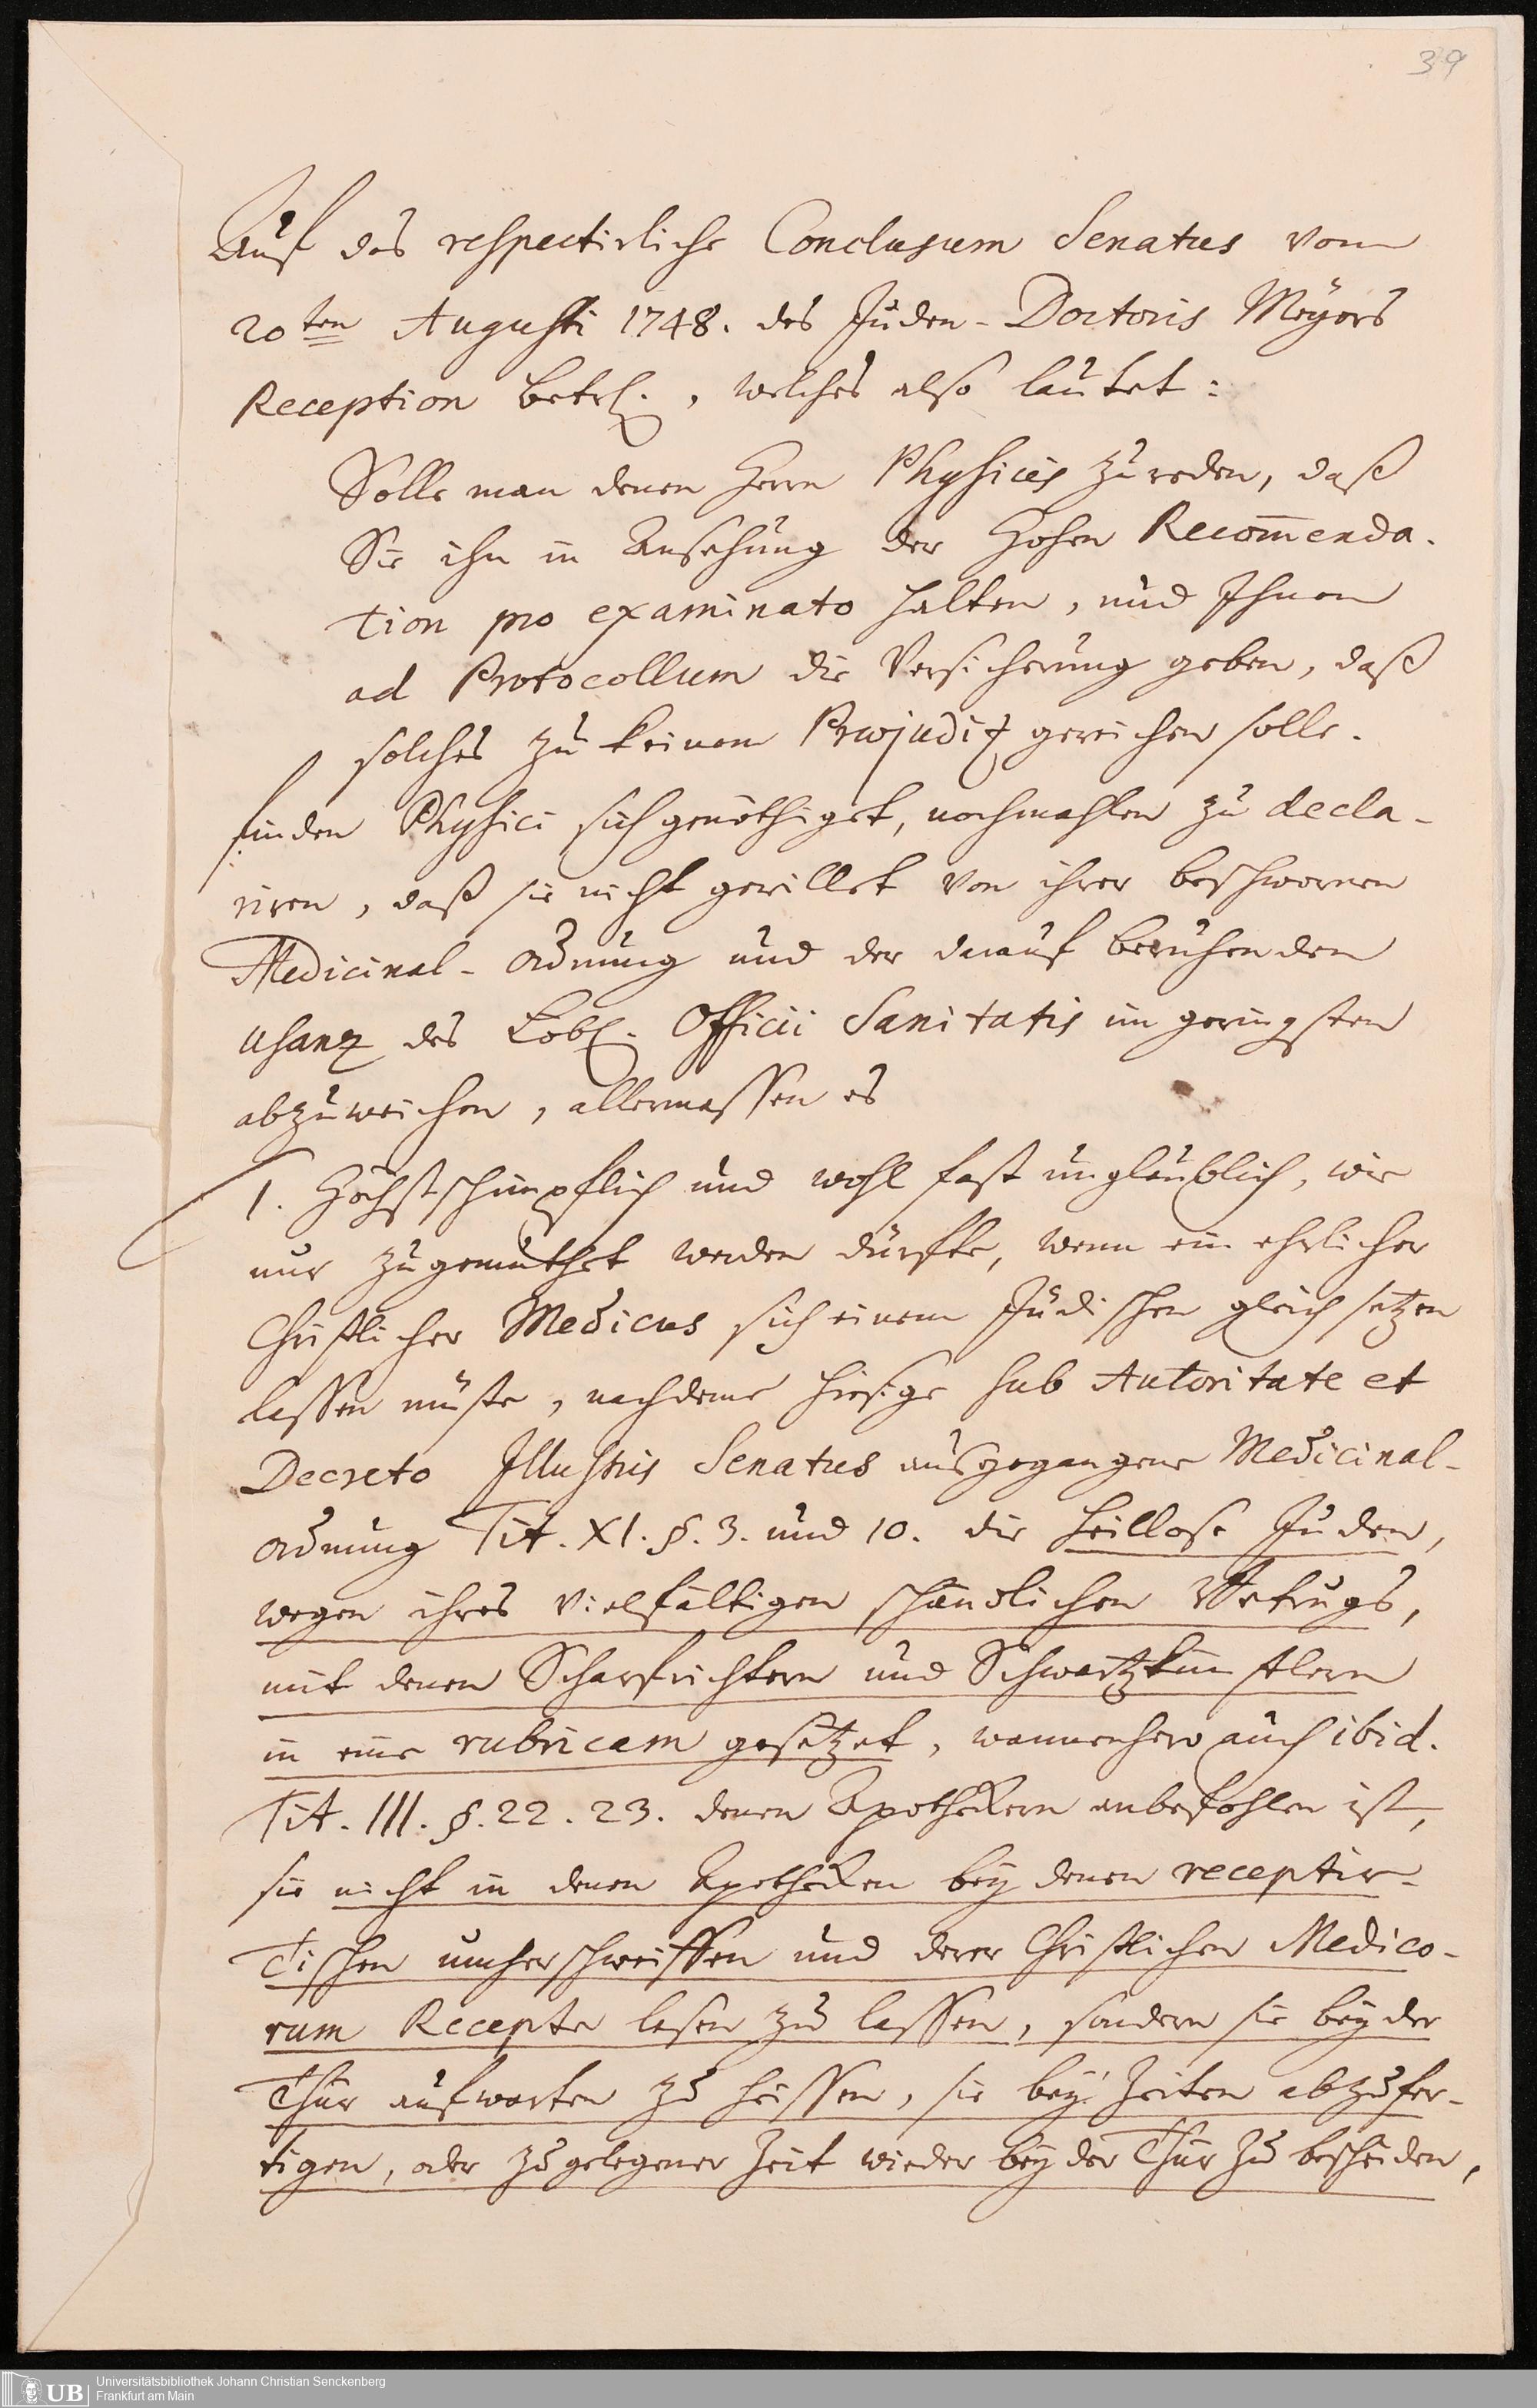 39
Auf das respectirliche Conclusum Senatus vom
20ten Augusti 1748. des Juden-Doctoris Meyers
Reception betrl., welches also lautet:
Solle man denen Herrn Physicis zureden, daß
Sie ihn in Ansehung der Hohen Recom̄enda-
tion pro examinato halten, und Ihnen
ad Protocollum die Versicherung geben, daß
solches zu keinem Praejudiz gereichen solle.
finden Physici sich genöthiget, nochmahlen zu decla-
riren, daß sie nicht gewillet von ihrer beschwornen
Medicinal-Ordnung und der darauf beruhenden
Usanz des Löbl. Officii Sanitatis im geringsten
abzuweichen, allermassen es
1. Höchstschimpflich und wohl fast unglaublich, wie
nur zugemuthet werden dürffte, wenn ein ehrlicher
Christlicher Medicus sich einem Jüdischen gleich setzen
lassen müste, nachdeme hiesige sub Autoritate et
Decreto Illustris Senatus ausgegangene Medicinal-
Ordnung Tit. XI. §. 3. und 10. die heillose Juden,
wegen ihres vielfältigen schändlichen Betrugs,
mit denen Scharfrichtern und Schwartzkünstlern
in eine rubricam gesetzet, wannenhero auch ibid.
Tit. III. §. 22. 23. denen Apotheckern anbefohlen ist,
sie nicht in denen Apothecken bey denen receptir-
Tischen umherschweiffen und derer Christlichen Medico-
rum Recepte lesen zu lassen, sondern sie bey der
Thür aufwarten zu heissen, sie bey Zeiten abzufer-
tigen, oder zu gelegener Zeit wieder bey der Thür zu bescheiden,
UB
Universitätsbibliothek Johann Christian Senckenberg
Frankfurt am Main